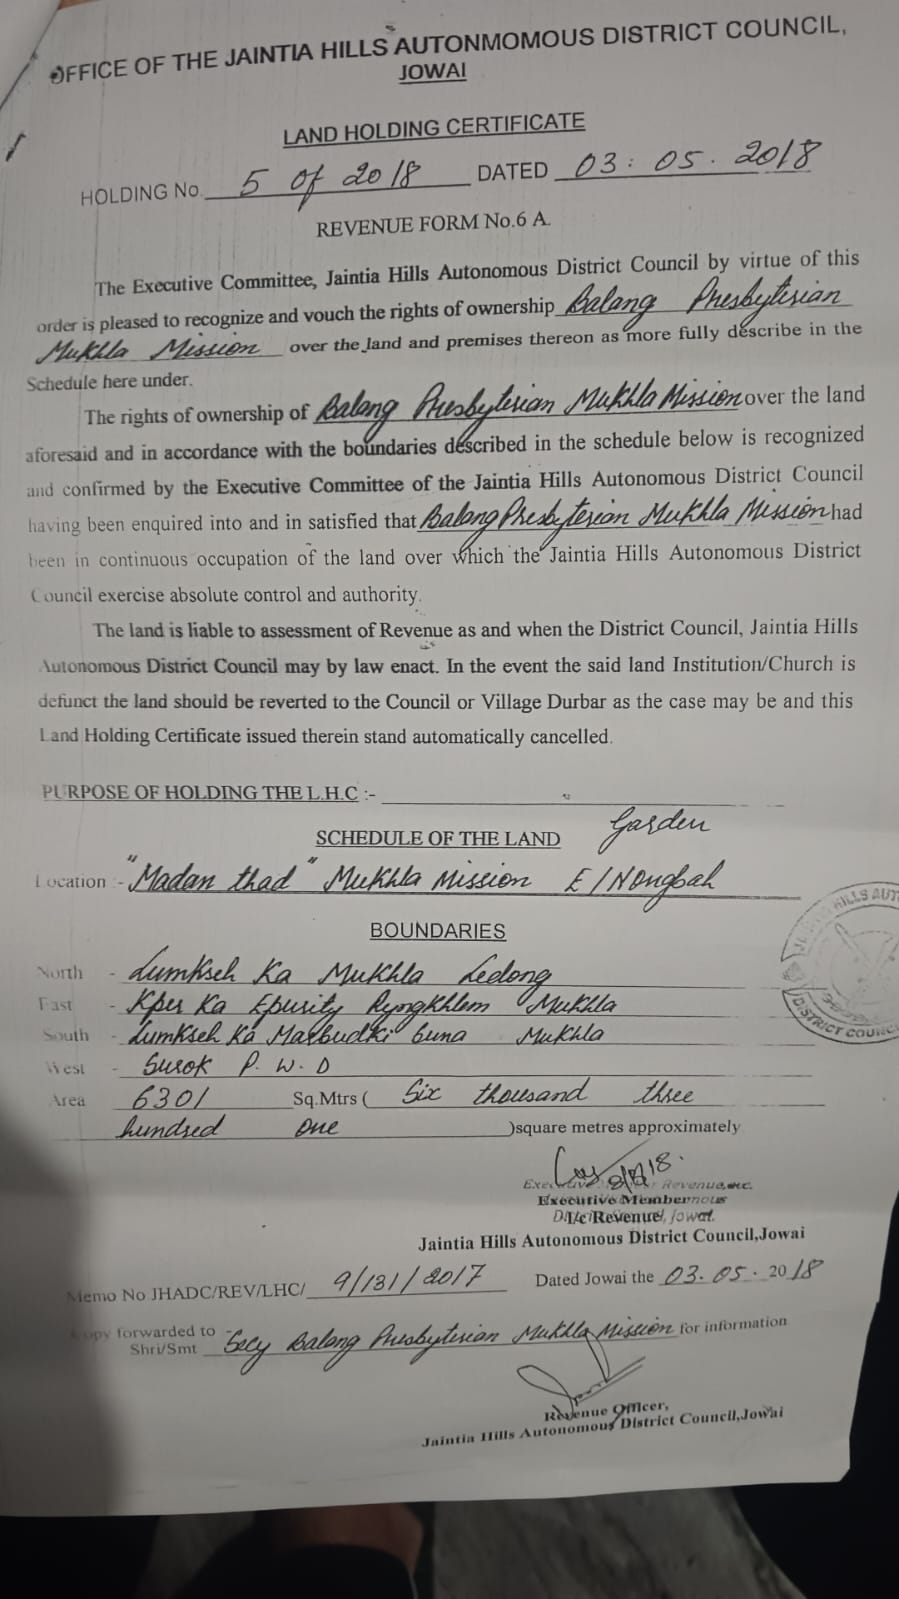 OFFICE OF THE JAINTIA HILLS AUTONMOMOUS DISTRICT COUNCIL,
JOWAI
LAND HOLDING CERTIFICATE
HOLDING No. 5 of 2018 DATED 03.05.2018
REVENUE FORM No.6 A.
The Executive Committee, Jaintia Hills Autonomous District Council by virtue of this
order is pleased to recognize and vouch the rights of ownership Balang Presbyterian
Mukhla Mission over the land and premises thereon as more fully describe in the
Schedule here under.
The rights of ownership of Balang Presbyterian Mukhla Mission over the land
aforesaid and in accordance with the boundaries described in the schedule below is recognized
and confirmed by the Executive Committee of the Jaintia Hills Autonomous District Council
having been enquired into and in satisfied that Balang Presbyterian Mukhla Mission had
been in continuous occupation of the land over which the Jaintia Hills Autonomous District
Council exercise absolute control and authority.
The land is liable to assessment of Revenue as and when the District Council, Jaintia Hills
Autonomous District Council may by law enact. In the event the said land Institution/Church is
defunct the land should be reverted to the Council or Village Durbar as the case may be and this
Land Holding Certificate issued therein stand automatically cancelled.
PURPOSE OF HOLDING THE L.H.C :-
Garden
SCHEDULE OF THE LAND
Location :- "Madan thad" Mukhla Mission E/Nongbah
BOUNDARIES
North - Lumkseh Ka Mukhla Ledong
East - Kper Ka Epurity Ryngkhlem Mukhla
South - Lumkseh Ka Mukhla
West - Surok P.W.D
Area 6301 Sq.Mtrs ( Six thousand three
hundred one )square metres approximately
Executive Member
I/c Revenue, Jowai.
Jaintia Hills Autonomous District Council,Jowai
Memo No JHADC/REV/LHC/ 9/131/2017 Dated Jowai the 03.05.2018
Copy forwarded to
Shri/Smt Secy Balang Presbyterian Mukhla Mission for information
Revenue Officer,
Jaintia Hills Autonomous District Council,Jowai